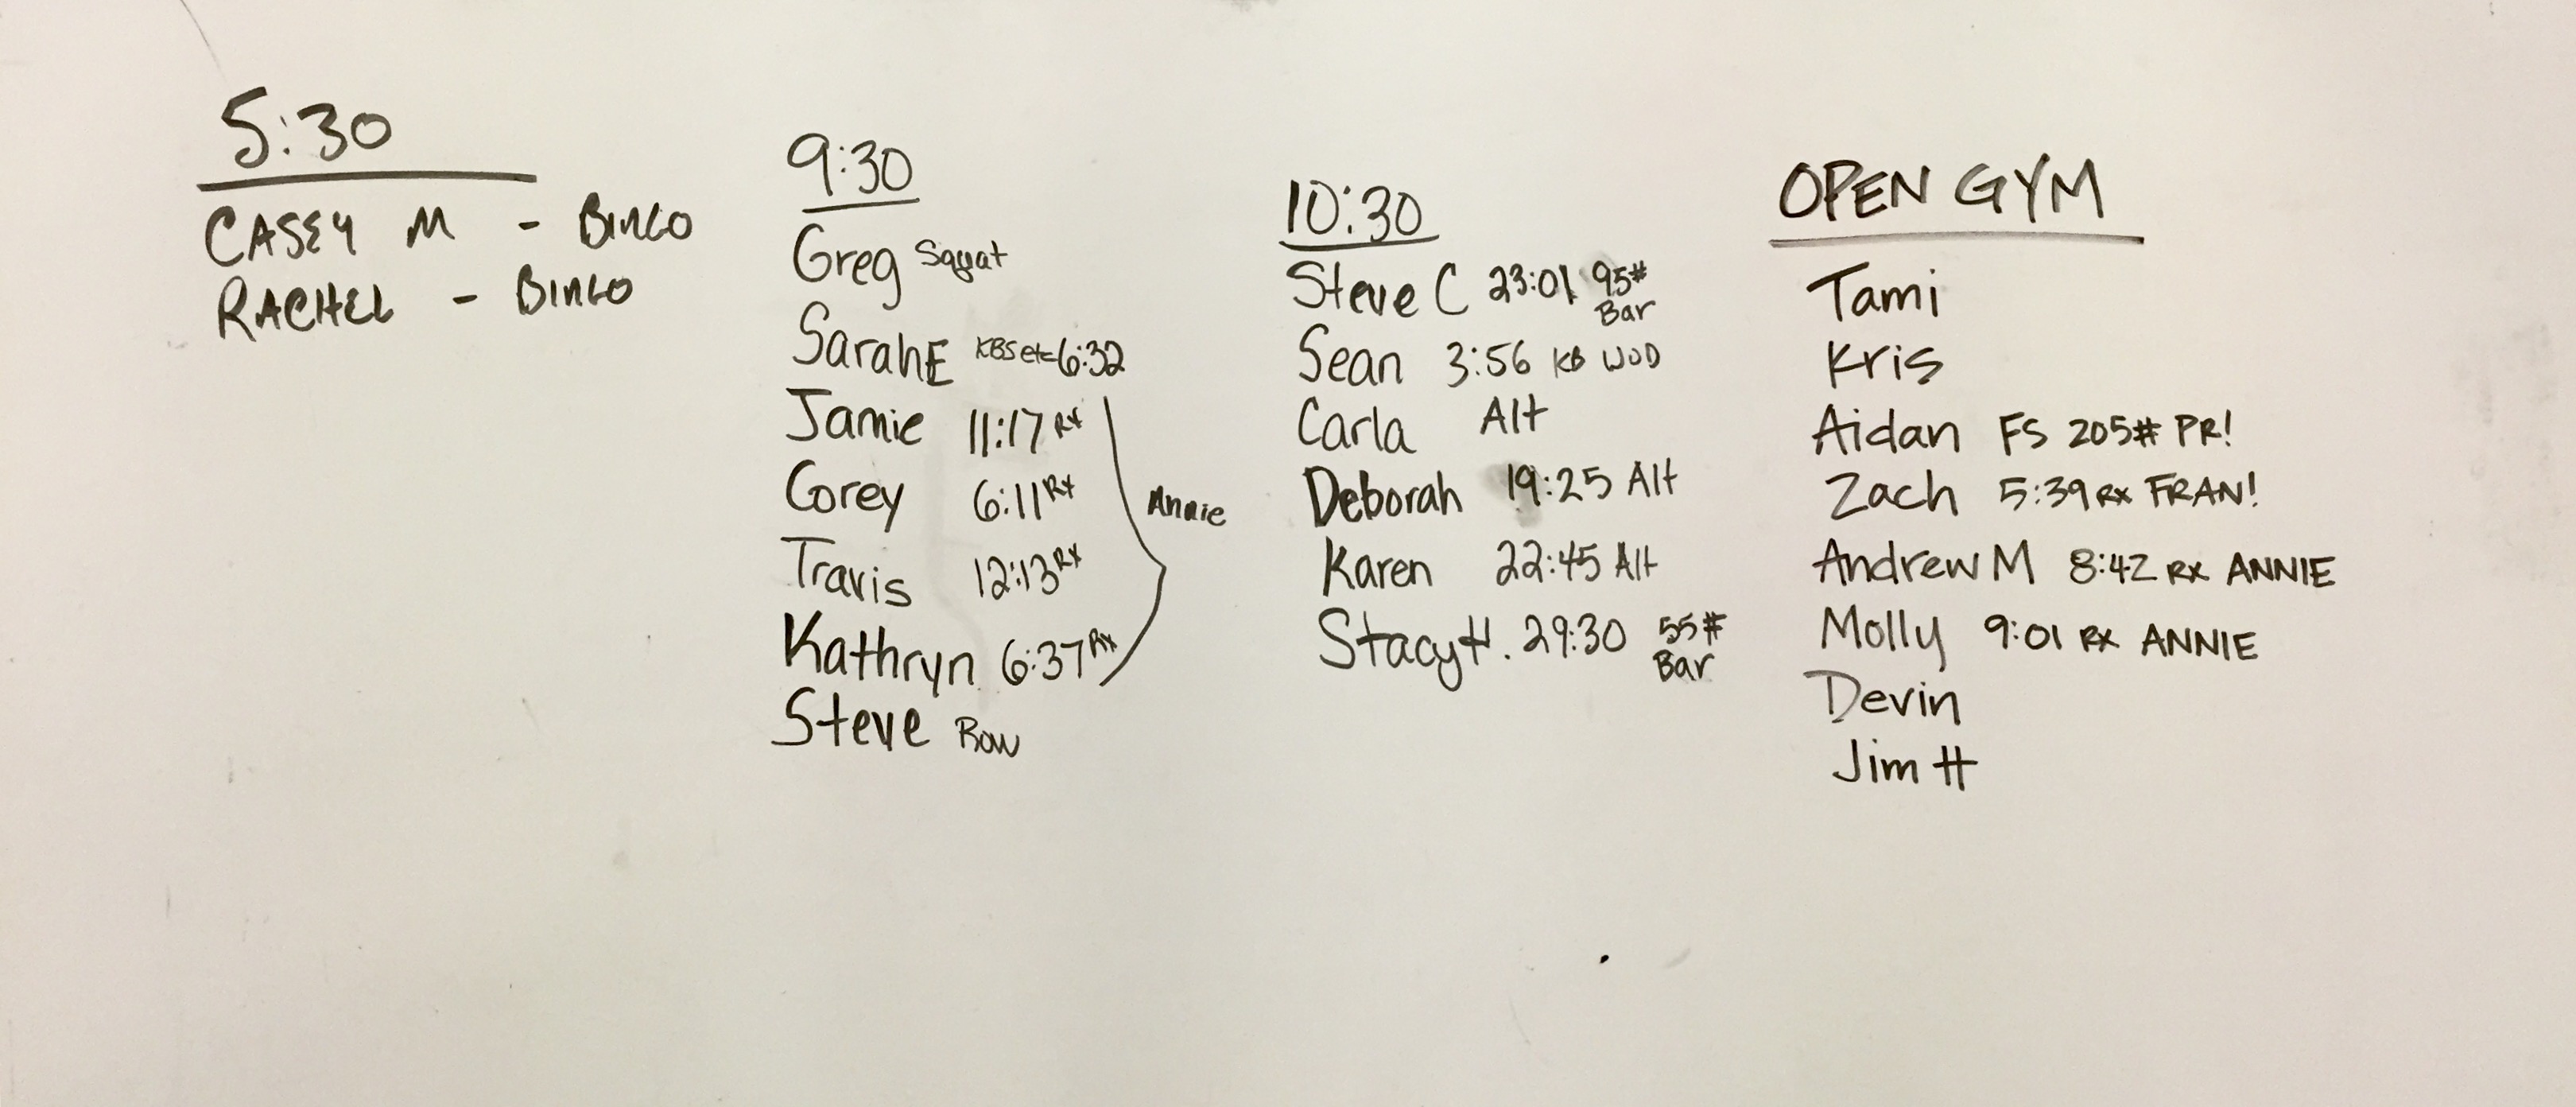 5:30
CASEY M - BINGO
RACHEL - BINGO
9:30
Greg Squat
Sarah E KBS etc 6:32
Jamie 11:17 Rx
Corey 6:11 Rx
Travis 12:13 Rx
Kathryn 6:37 Rx
Annie
Steve Row
10:30
Steve C 23:01 95#
Bar
Sean 3:56 KB WOD
Carla Alt
Deborah 19:25 Alt
Karen 22:45 Alt
Stacy H. 29:30 55#
Bar
OPEN GYM
Tami
Kris
Aidan FS 205# PR!
Zach 5:39 RX FRAN!
Andrew M 8:42 RX ANNIE
Molly 9:01 RX ANNIE
Devin
Jim H